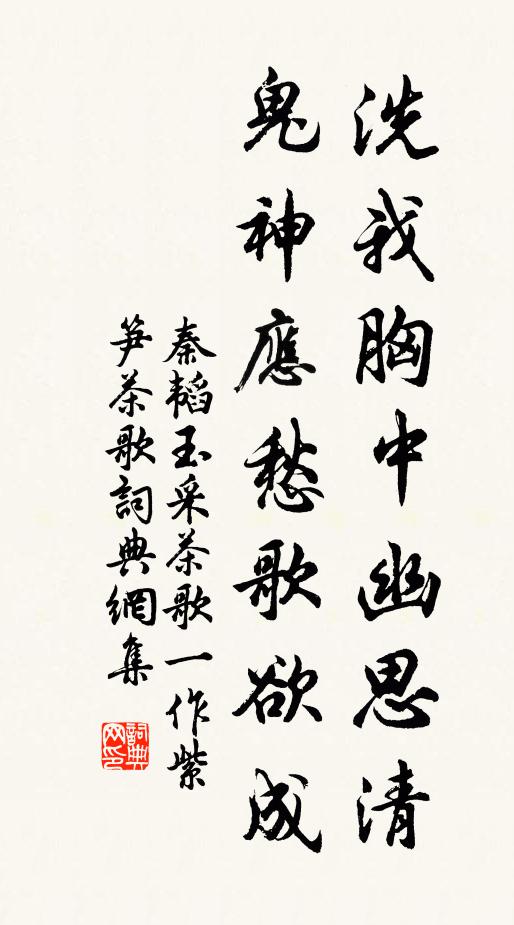 洗我胸中幽思清
鬼神應愁歌欲成
秦韜玉采茶歌一作紫
笋茶歌詞典網集
詞典网印